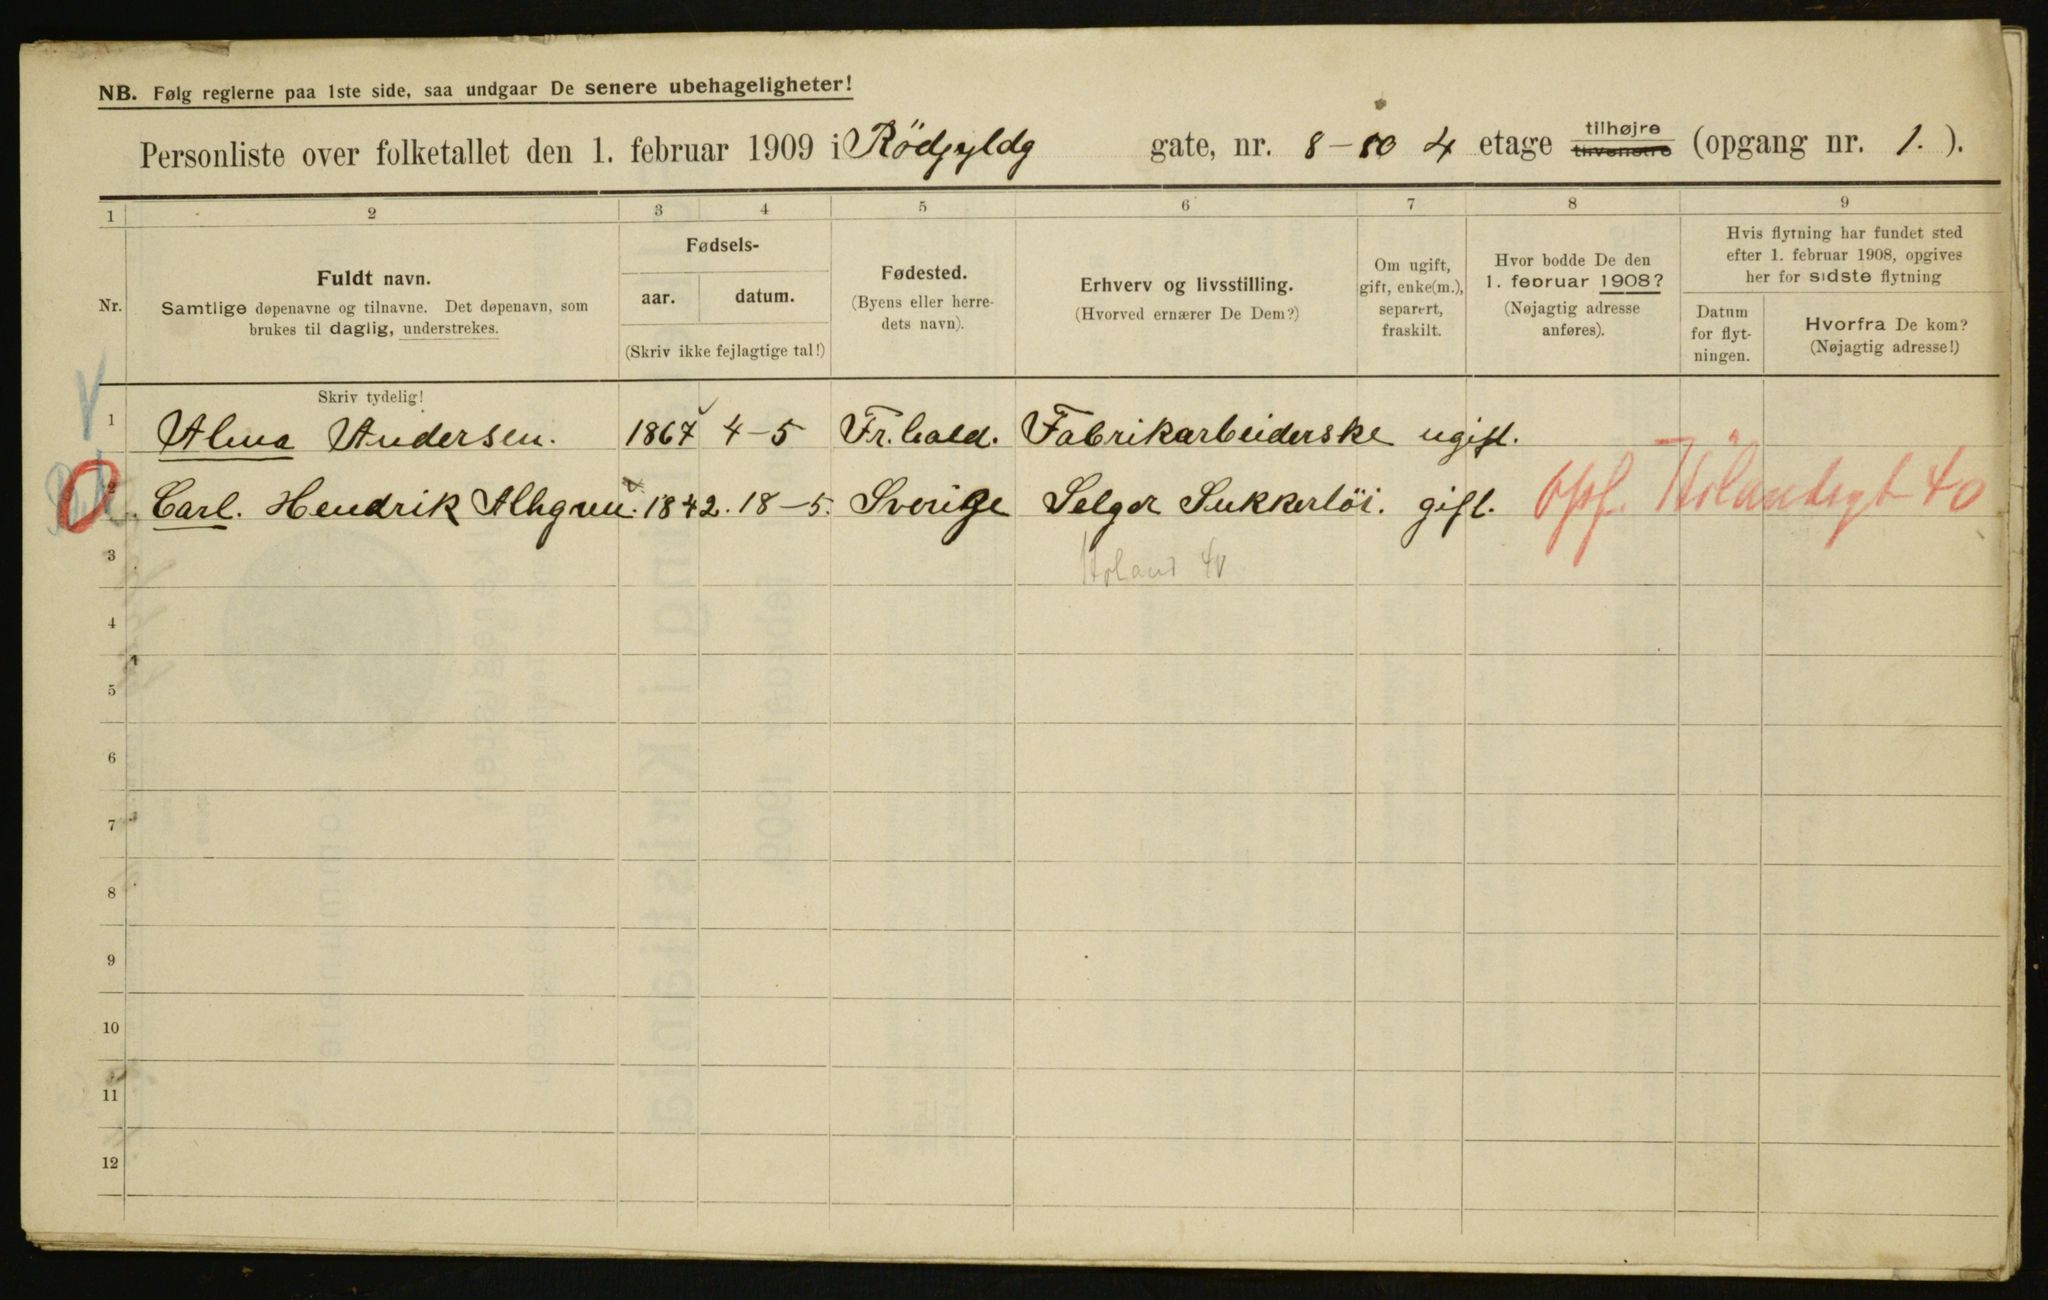 NB. Følg reglerne paa 1ste side, saa undgaar De senere ubehageligheter!
Personliste over folketallet den 1. februar 1909 i Rödfyldg gate, nr. 8-10 4 etage tilhøjre tilvenstre (opgang nr. 1. ).
1 2 3 4 5 6 7 8 9
Nr.
Fuldt navn.
Samtlige døpenavne og tilnavne. Det døpenavn, som
brukes til daglig, understrekes.
Fødsels-
aar. datum.
(Skriv ikke fejlagtige tal!)
Fødested.
(Byens eller herre-
dets navn).
Erhverv og livsstilling.
(Hvorved ernærer De Dem?)
Om ugift,
gift, enke(m.),
separert,
fraskilt.
Hvor bodde De den
1. februar 1908?
(Nøjagtig adresse
anføres).
Hvis flytning har fundet sted
efter 1. februar 1908, opgives
her for sidste flytning
Datum
for flyt-
ningen.
Hvorfra De kom?
(Nøjagtig adresse!)
Skriv tydelig!
1 Alma Andersen. 1867 4-5 Fr.hald. Fabrikarbeiderske ugift.
2 Carl. Hendrik Alhgren. 1842. 18-5. Sverige Selger Sukkertöi. gift. Opf. Hölandsgt 40
3 Höland 40
4
5
6
7
8
9
10
11
12